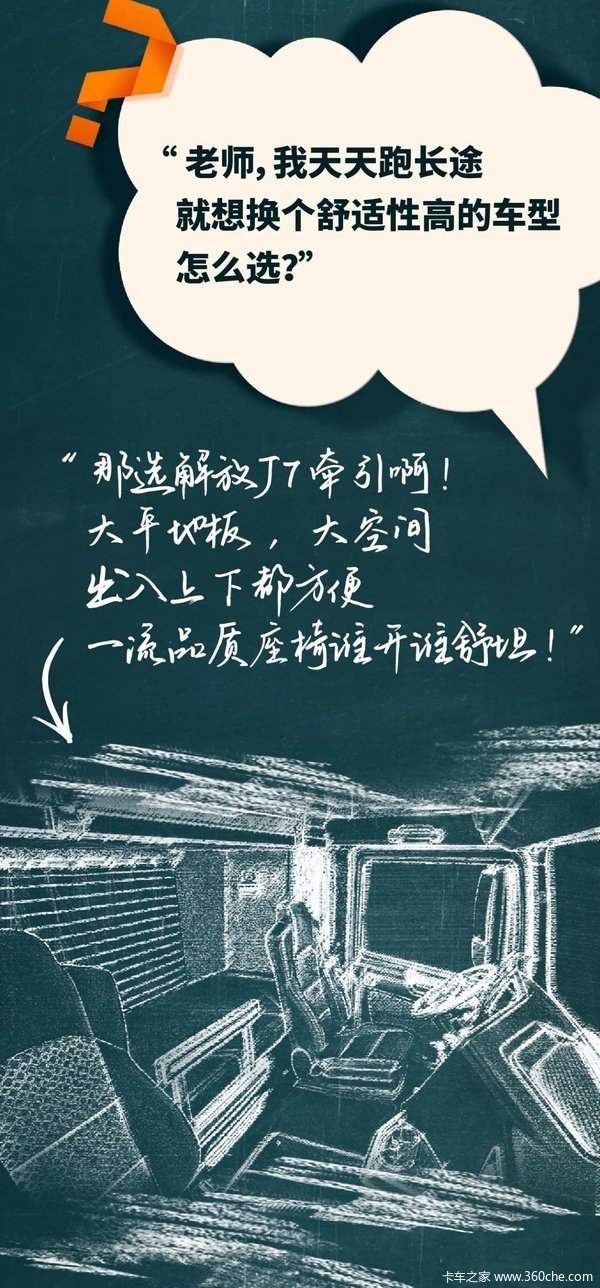 “老师，我天天跑长途
就想换个舒适性高的车型
怎么选？”
“那选解放J7牵引啊！
大平地板，大空间
出入上下都方便
一流品质座椅谁开谁舒坦！”
卡车之家 www.360che.com